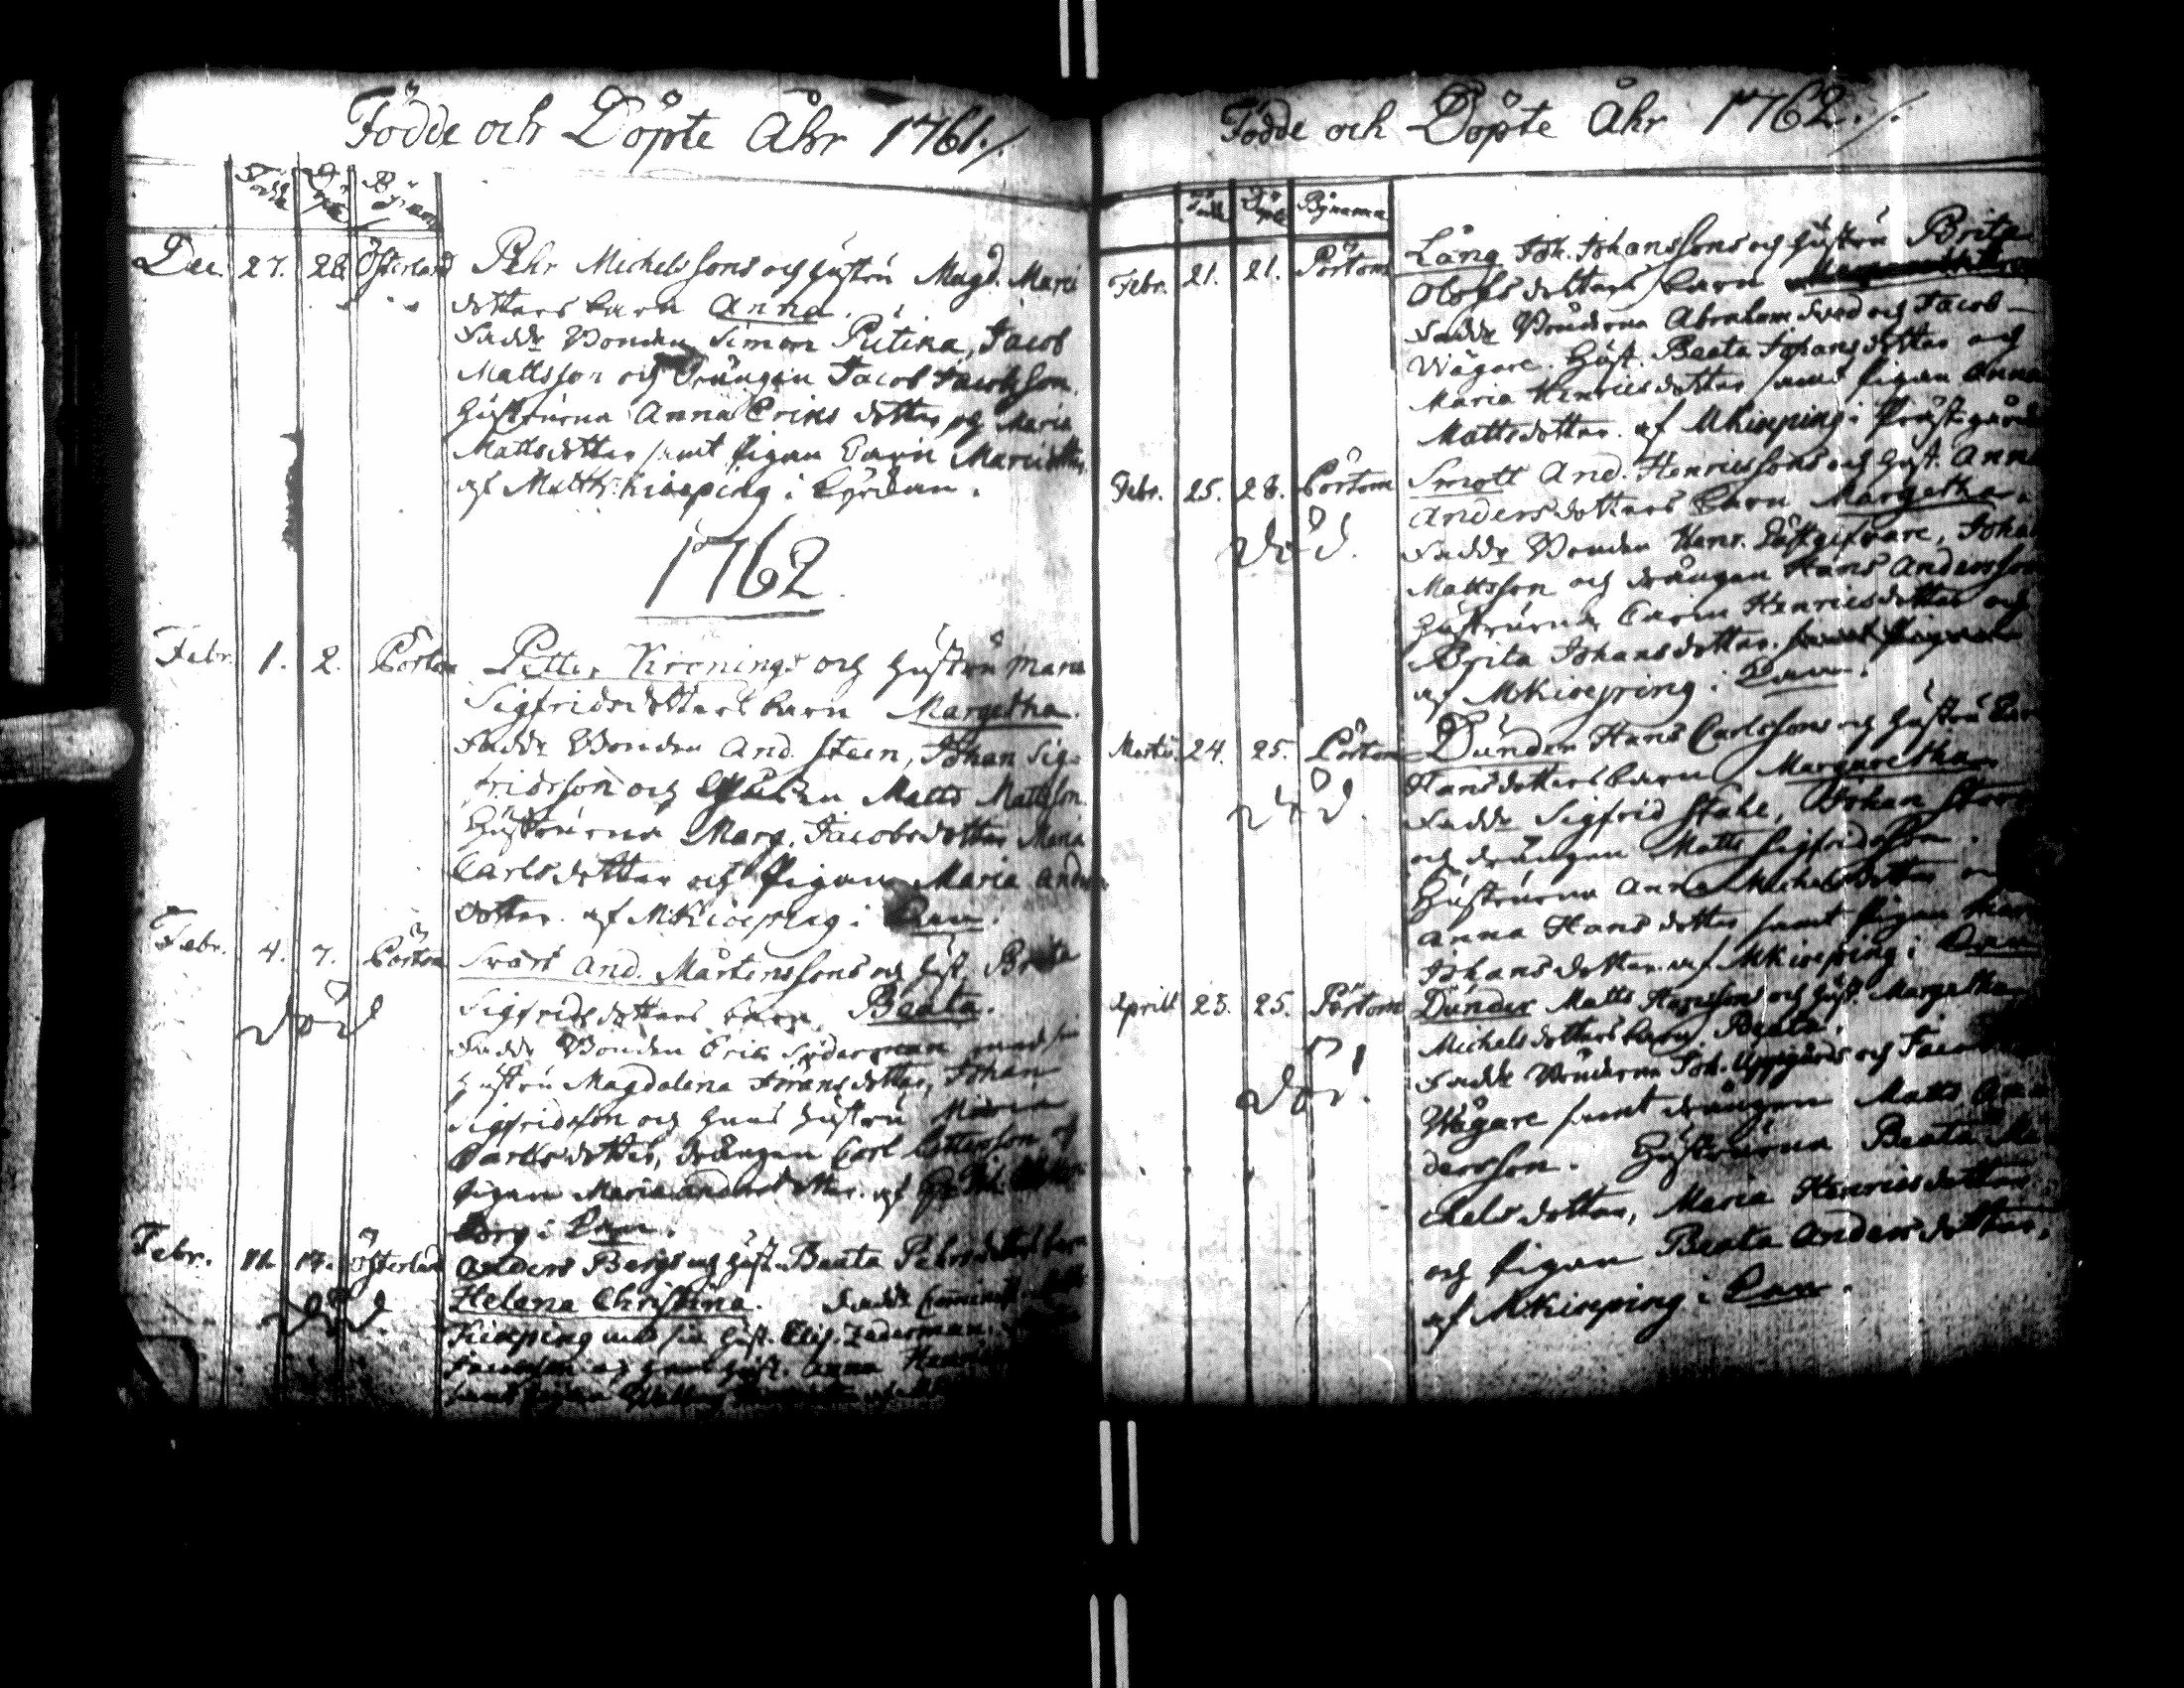 Födde och Döpte Åhr 1761./.
Födde Döpte Bynamn
Dec. 27. 28. Österland Pehr Michelssons och hustru Magd. Marci
dotters barn Anna.
Fadd: Bonden Simon Pitina, Jacob
Mattsson och drängen Jacob Jacobsson.
Hustrurna Anna Eriks dotter och Maria
Mattsdotter samt pigan Carin Marcidotter
af Matth. Kiöeping i Kyrkan.
1762
Febr. 1. 2. Pörtom Petter Kronings och hustru Maria
Sigfridsdotters barn Margetha.
Fadd: Bonden And. Steen, Johan Sig-
fridsson och Matts Mattsson.
Hustrurna Marg. Jacobsdotter Maria
Carlsdotter och Pigan Maria Anders
dotter. af MKiöeping i
Febr. 4. 7. Pörtom Svart And. Mårtenssons och Hust. Brita
Sigfridsdotters barn Beata.
död
Fadd: Bonden Erik Söderman med sin
hustru Magdalena Jöransdotter, Johan
Sigfridsson och hans hustru Maria
Carlsdotter, drängen Carl Pettersson och
pigan Maria Andersdotter. af
borg i
Febr. 11. 14. Österland Anders Bergs och hust. Beata Pehrsdotters barn
död
Helena Christina. Fadd:
Kiöeping med sin hust. Elis. Zederman.
och hans hust. Anna
samt pigan
Födde och Döpte Åhr 1762./.
Född Döpt Bÿnamn
Febr. 21. 21. Pörtom Lång Joh. Johanssons och hustru Brita
Olofsdotters barn
Fadd: Bönderna Abraham Sved och Jacob
Wägare. Hust. Beata Johansdotter och
Maria Henricsdotter samt pigan Anna
Mattsdotter. af MKiöeping i Prästgården
Febr. 25. 28. Pörtom Smott And. Henricssons och hust. Anna
Andersdotters barn Margetha.
död.
Fadd: Bonden Henr. Gästgifvare, Johan
Mattsson och drängen Hans Andersson
Hustrurna Carin Henricsdotter och
Brita Johansdotter.
af MKiöeping i
Martii 24. 25. Pörtom Dunder Hans Carlssons och hustru
Hansdotters barn Margaretha
död.
Fadd: Sigfrid Stahl, Johan
och drängen Matts Sigfridsson.
Hustrurna Anna Michelsdotter
Anna Hansdotter samt pigan
Johansdotter. af MKiöeping i
Aprill 23. 25. Pörtom Dunder Matts Hanssons och hust. Margetha
Michelsdotters barn Beata.
död.
Fadd: Bönderna Joh. Uppgårds och Jacob
Wägare samt drängen Matts An-
dersson. Hustrurna Beata Mi-
chelsdotter, Maria Henricsdotter
och pigan Beata Andersdotter,
af MKiöeping i